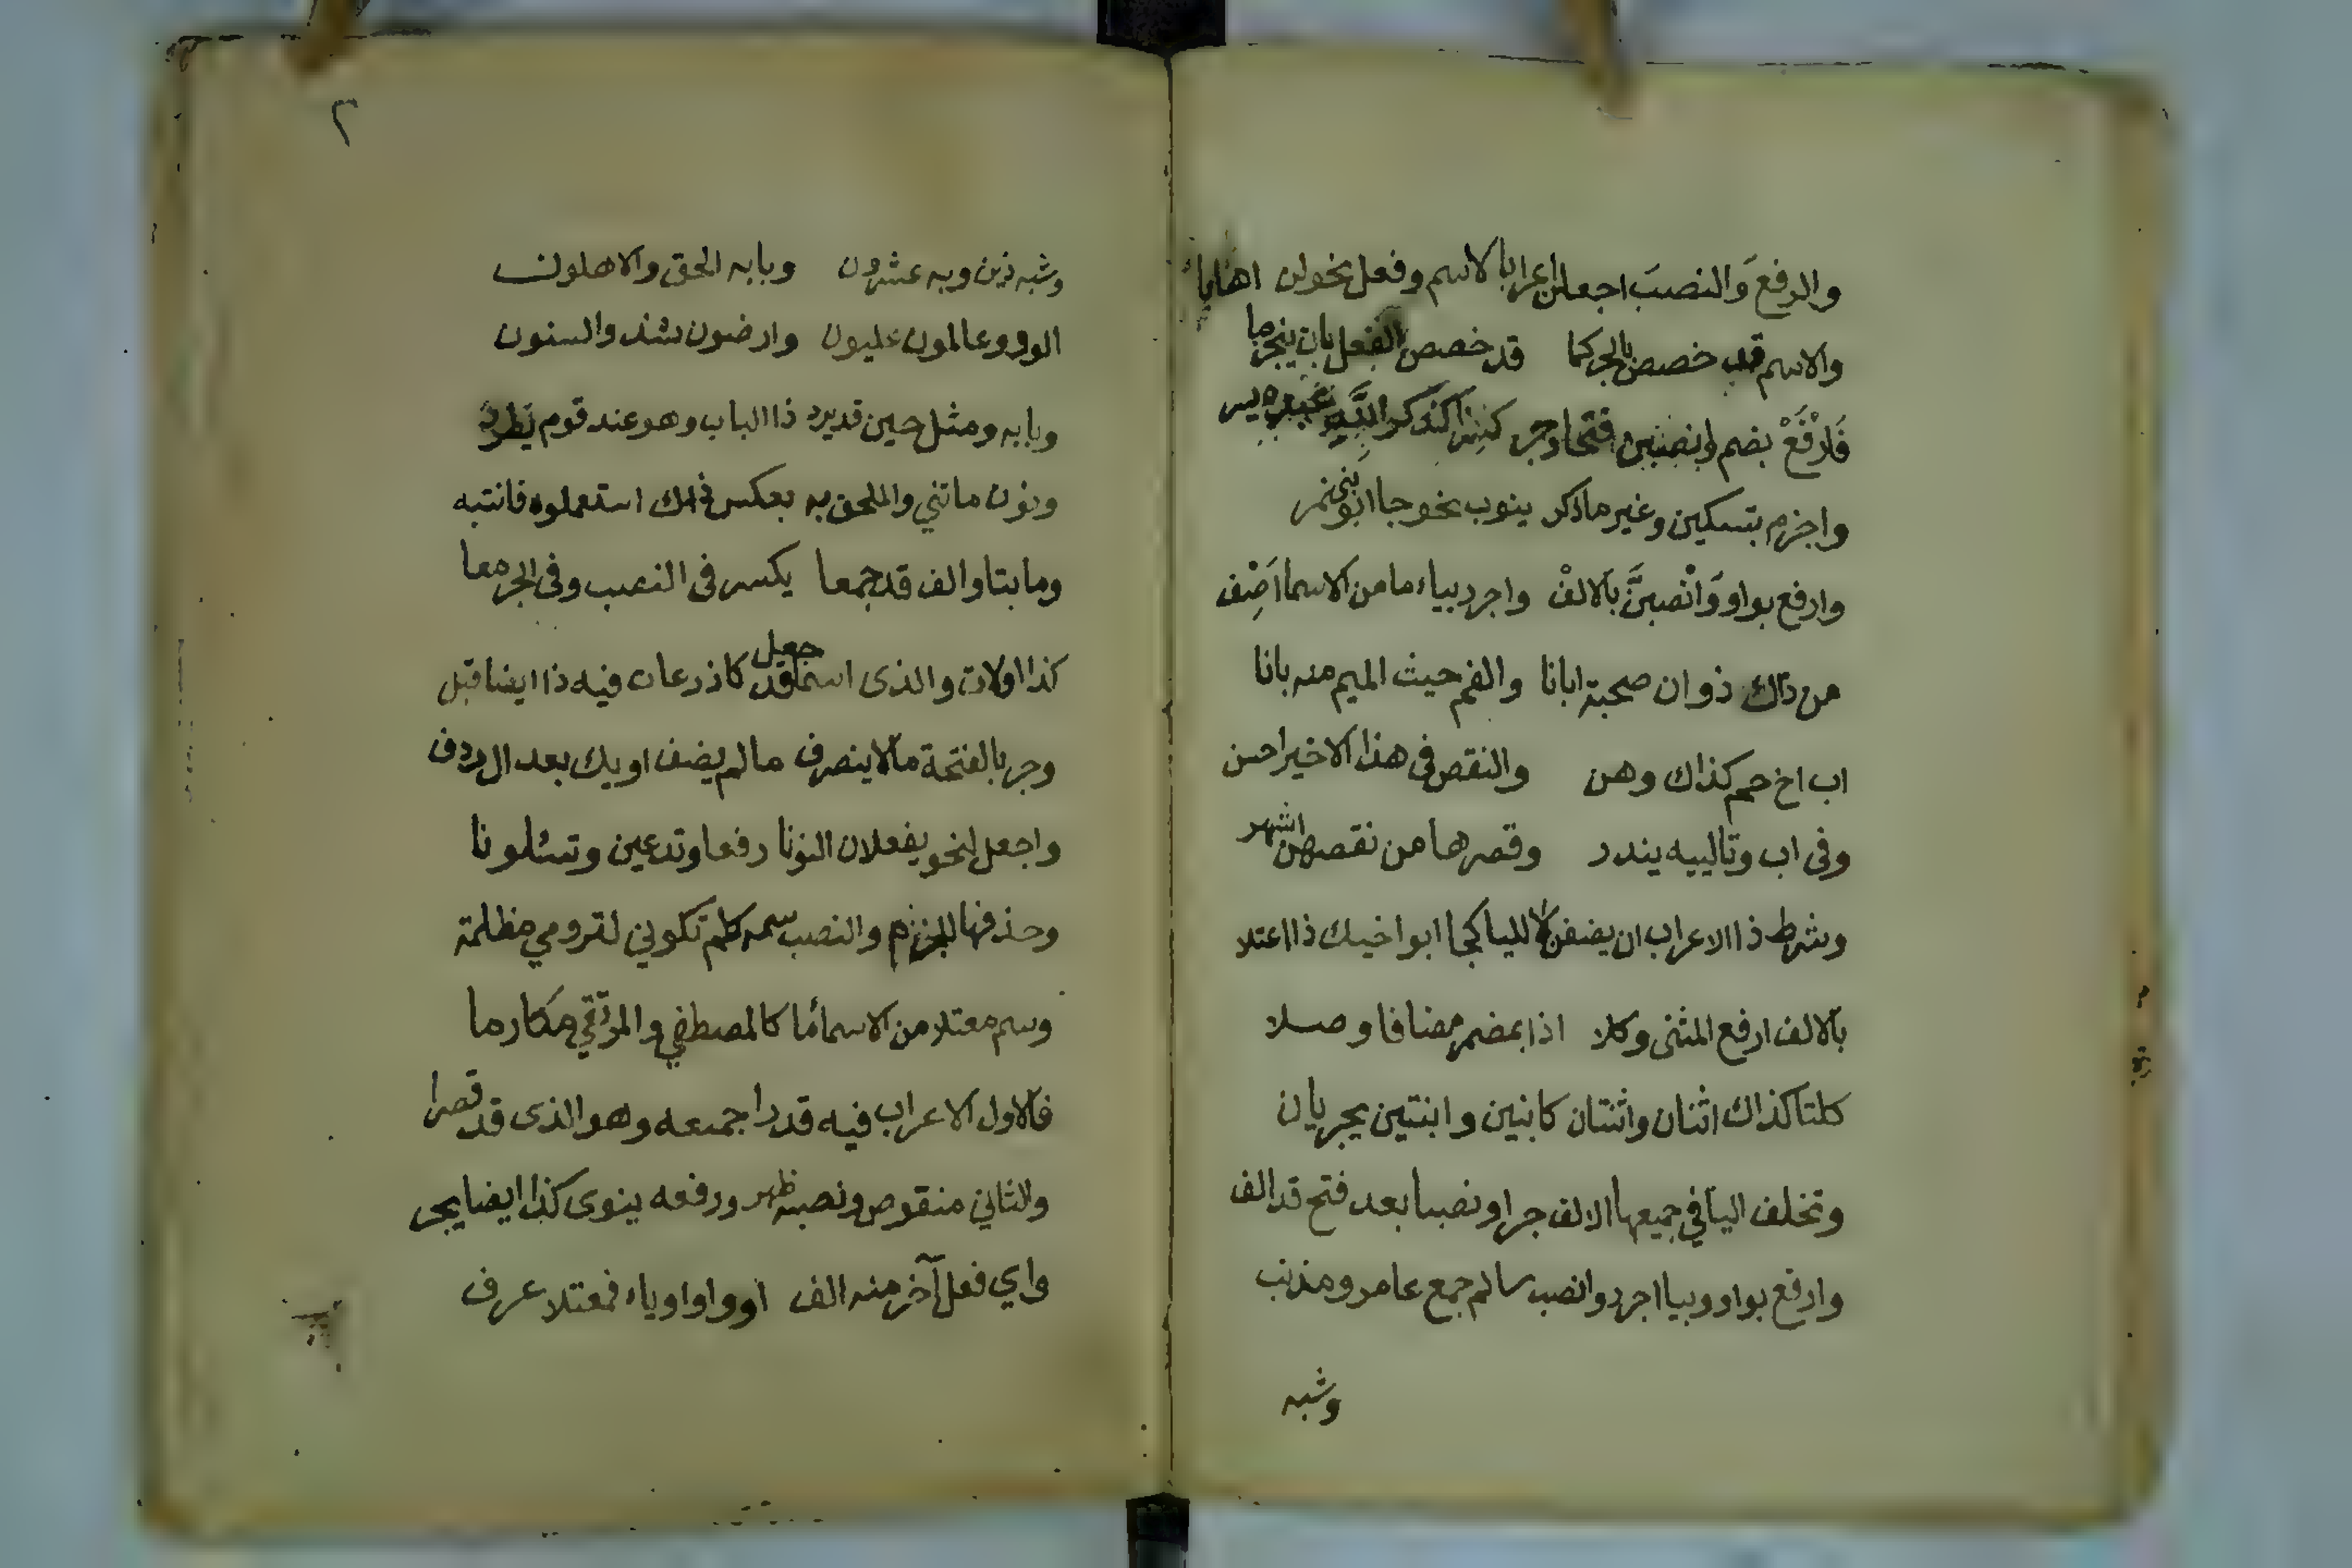 والرفعَ وَالنصبَ اجعلن اعرابا لاسم وفعل نحو لن اهابا
والاسم قد خصص بالجر كما قد خصص الفعل بان ينجزما
فَارْفَعْ بضم وانصبن فتحا وجر كسرا كذكر اللَّهِ عبده يسر
واجزم بتسكين وغير ما ذكر ينوب نحو جا اخو بنى نمر
وارفع بواو وَانْصبنَّ بالالفْ واجرر بياء ما من الاسما اَضِف
من ذاك ذو ان صحبة ابانا والفم حيث الميم منه بانا
اب اخ حم كذاك وهن والنقص فى هذا الاخير احسن
وفى اب وتالييه يندر وقصرها من نقصهن اشهر
وشرط ذا الاعراب ان يضفن لا لليا كجا ابو اخيك ذا اعتلا
بالالف ارفع المثنى وكلا اذا بمضمر مضافا وصلا
كلتا كذاك اثنان واثنتان كابنين وابنتين يجريان
وتخلف اليا في جميعها الالف جرا ونصبا بعد فتح قد الف
وارفع بواو وبيا اجرر وانصب سالم جمع عامر ومذنب
وشبه
٢
وشبه ذين وبه عشرون وبابه الحق والاهلون
الوو وعالمون عليون وارضون شذ والسنون
وبابه ومثل حين قد يرد ذا الباب وهو عند قوم يَطرد
ونون ما ثني والملحق به بعكس ذلك استعملوه فانتبه
وما بتا والف قد جمعا يكسر فى النصب وفى الجر معا
كذا اولات والذى اسما قد جعل كاذرعات فيه ذا ايضا قبل
وجر بالفتحة ما لا ينصرف ما لم يضف او يك بعد ال ردف
واجعل لنحو يفعلان النونا رفعا وتدعين وتسئلونا
وحذفها للجزم والنصب سمه كلم تكوني لترومي مظلمة
وسم معتلا من الاسما مَا كالمصطفي والمرتقي مَكارما
فالاول الاعراب فيه قدرا جميعه وهو الذى قد قصرا
والثاني منقوص ونصبه ظهر ورفعه ينوى كذا ايضا يجر
واي فعل آخر منه الف او واو او ياء فمعتلا عرف